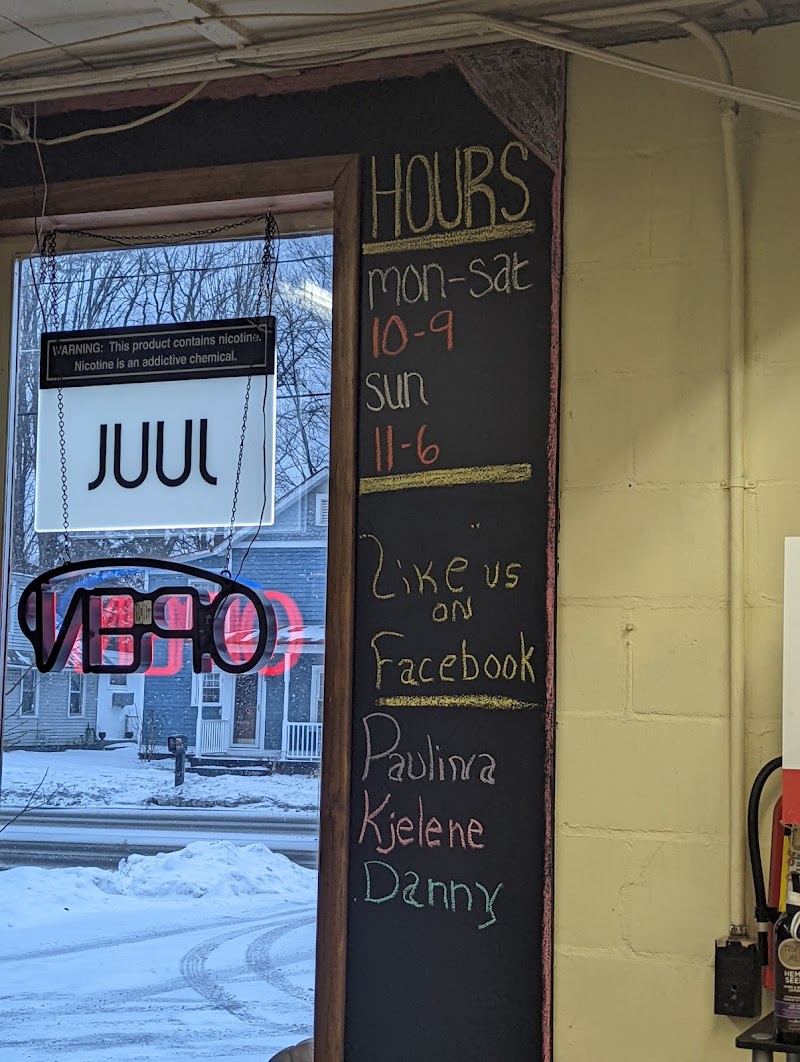 HOURS
mon-sat
10-9
sun
11-6
"Like" us
on
Facebook
Paulina
Kjelene
Danny
WARNING: This product contains nicotine.
Nicotine is an addictive chemical.
JUUL
OPEN
HEMP
SEED